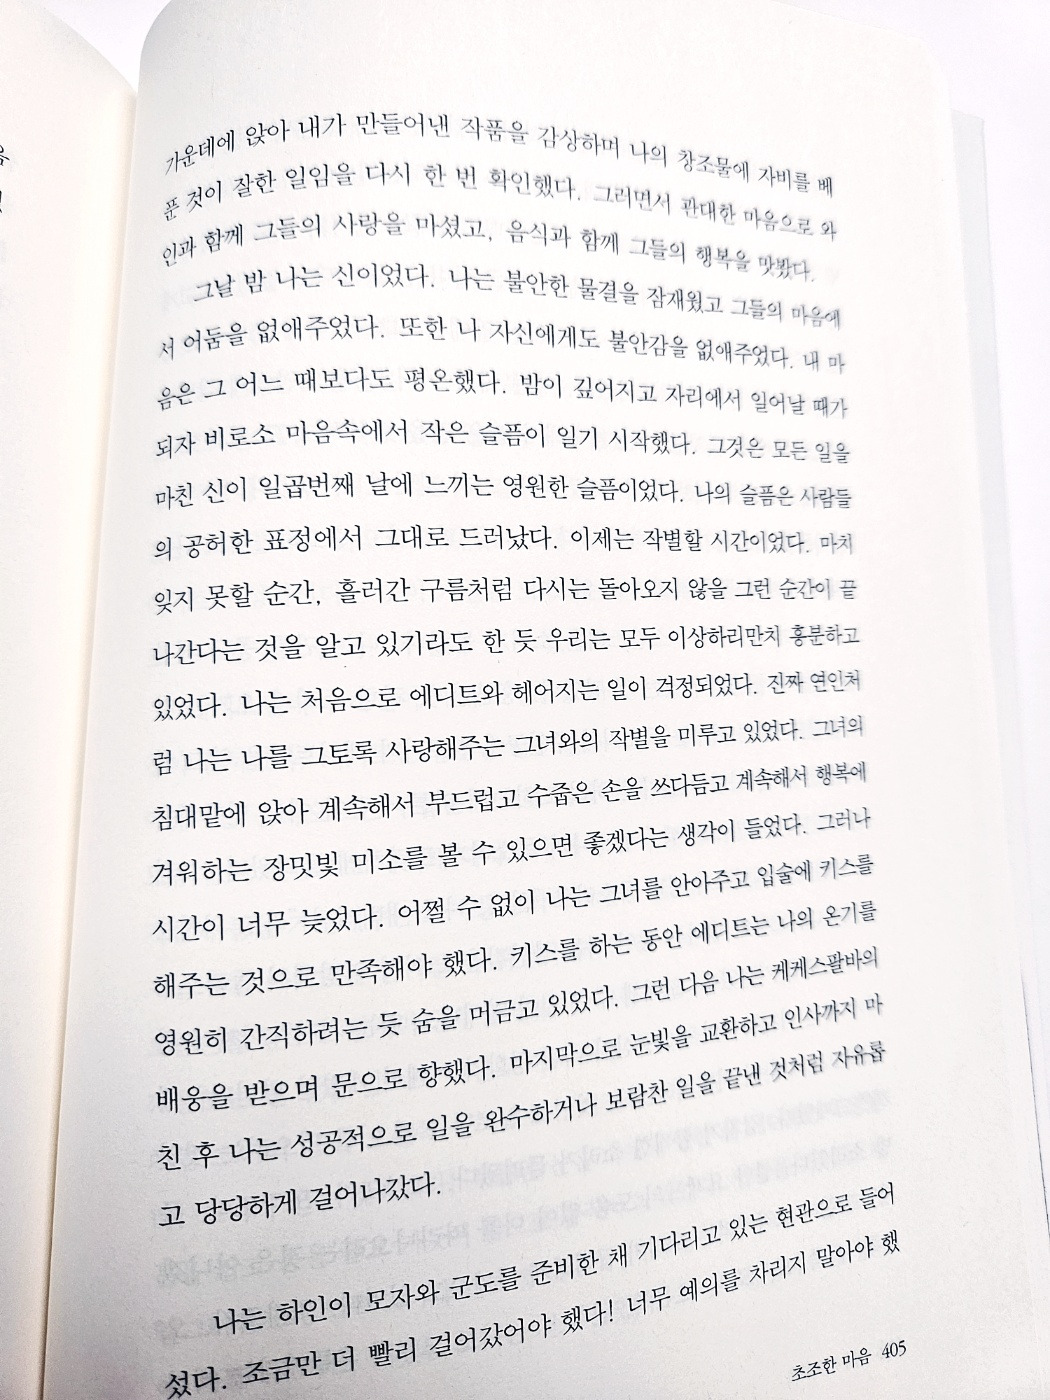 가운데에 앉아 내가 만들어낸 작품을 감상하며 나의 창조물에 자비를 베
푼 것이 잘한 일임을 다시 한 번 확인했다. 그러면서 관대한 마음으로 와
인과 함께 그들의 사랑을 마셨고, 음식과 함께 그들의 행복을 맛봤다.
그날 밤 나는 신이었다. 나는 불안한 물결을 잠재웠고 그들의 마음에
서 어둠을 없애주었다. 또한 나 자신에게도 불안감을 없애주었다. 내 마
음은 그 어느 때보다도 평온했다. 밤이 깊어지고 자리에서 일어날 때가
되자 비로소 마음속에서 작은 슬픔이 일기 시작했다. 그것은 모든 일을
마친 신이 일곱번째 날에 느끼는 영원한 슬픔이었다. 나의 슬픔은 사람들
의 공허한 표정에서 그대로 드러났다. 이제는 작별할 시간이었다. 마치
잊지 못할 순간, 흘러간 구름처럼 다시는 돌아오지 않을 그런 순간이 끝
나간다는 것을 알고 있기라도 한 듯 우리는 모두 이상하리만치 흥분하고
있었다. 나는 처음으로 에디트와 헤어지는 일이 걱정되었다. 진짜 연인처
럼 나는 나를 그토록 사랑해주는 그녀와의 작별을 미루고 있었다. 그녀의
침대맡에 앉아 계속해서 부드럽고 수줍은 손을 쓰다듬고 계속해서 행복에
겨워하는 장밋빛 미소를 볼 수 있으면 좋겠다는 생각이 들었다. 그러나
시간이 너무 늦었다. 어쩔 수 없이 나는 그녀를 안아주고 입술에 키스를
해주는 것으로 만족해야 했다. 키스를 하는 동안 에디트는 나의 온기를
영원히 간직하려는 듯 숨을 머금고 있었다. 그런 다음 나는 케케스팔바의
배웅을 받으며 문으로 향했다. 마지막으로 눈빛을 교환하고 인사까지 마
친 후 나는 성공적으로 일을 완수하거나 보람찬 일을 끝낸 것처럼 자유롭
고 당당하게 걸어나갔다.
나는 하인이 모자와 군도를 준비한 채 기다리고 있는 현관으로 들어
섰다. 조금만 더 빨리 걸어갔어야 했다! 너무 예의를 차리지 말아야 했
초조한 마음 405